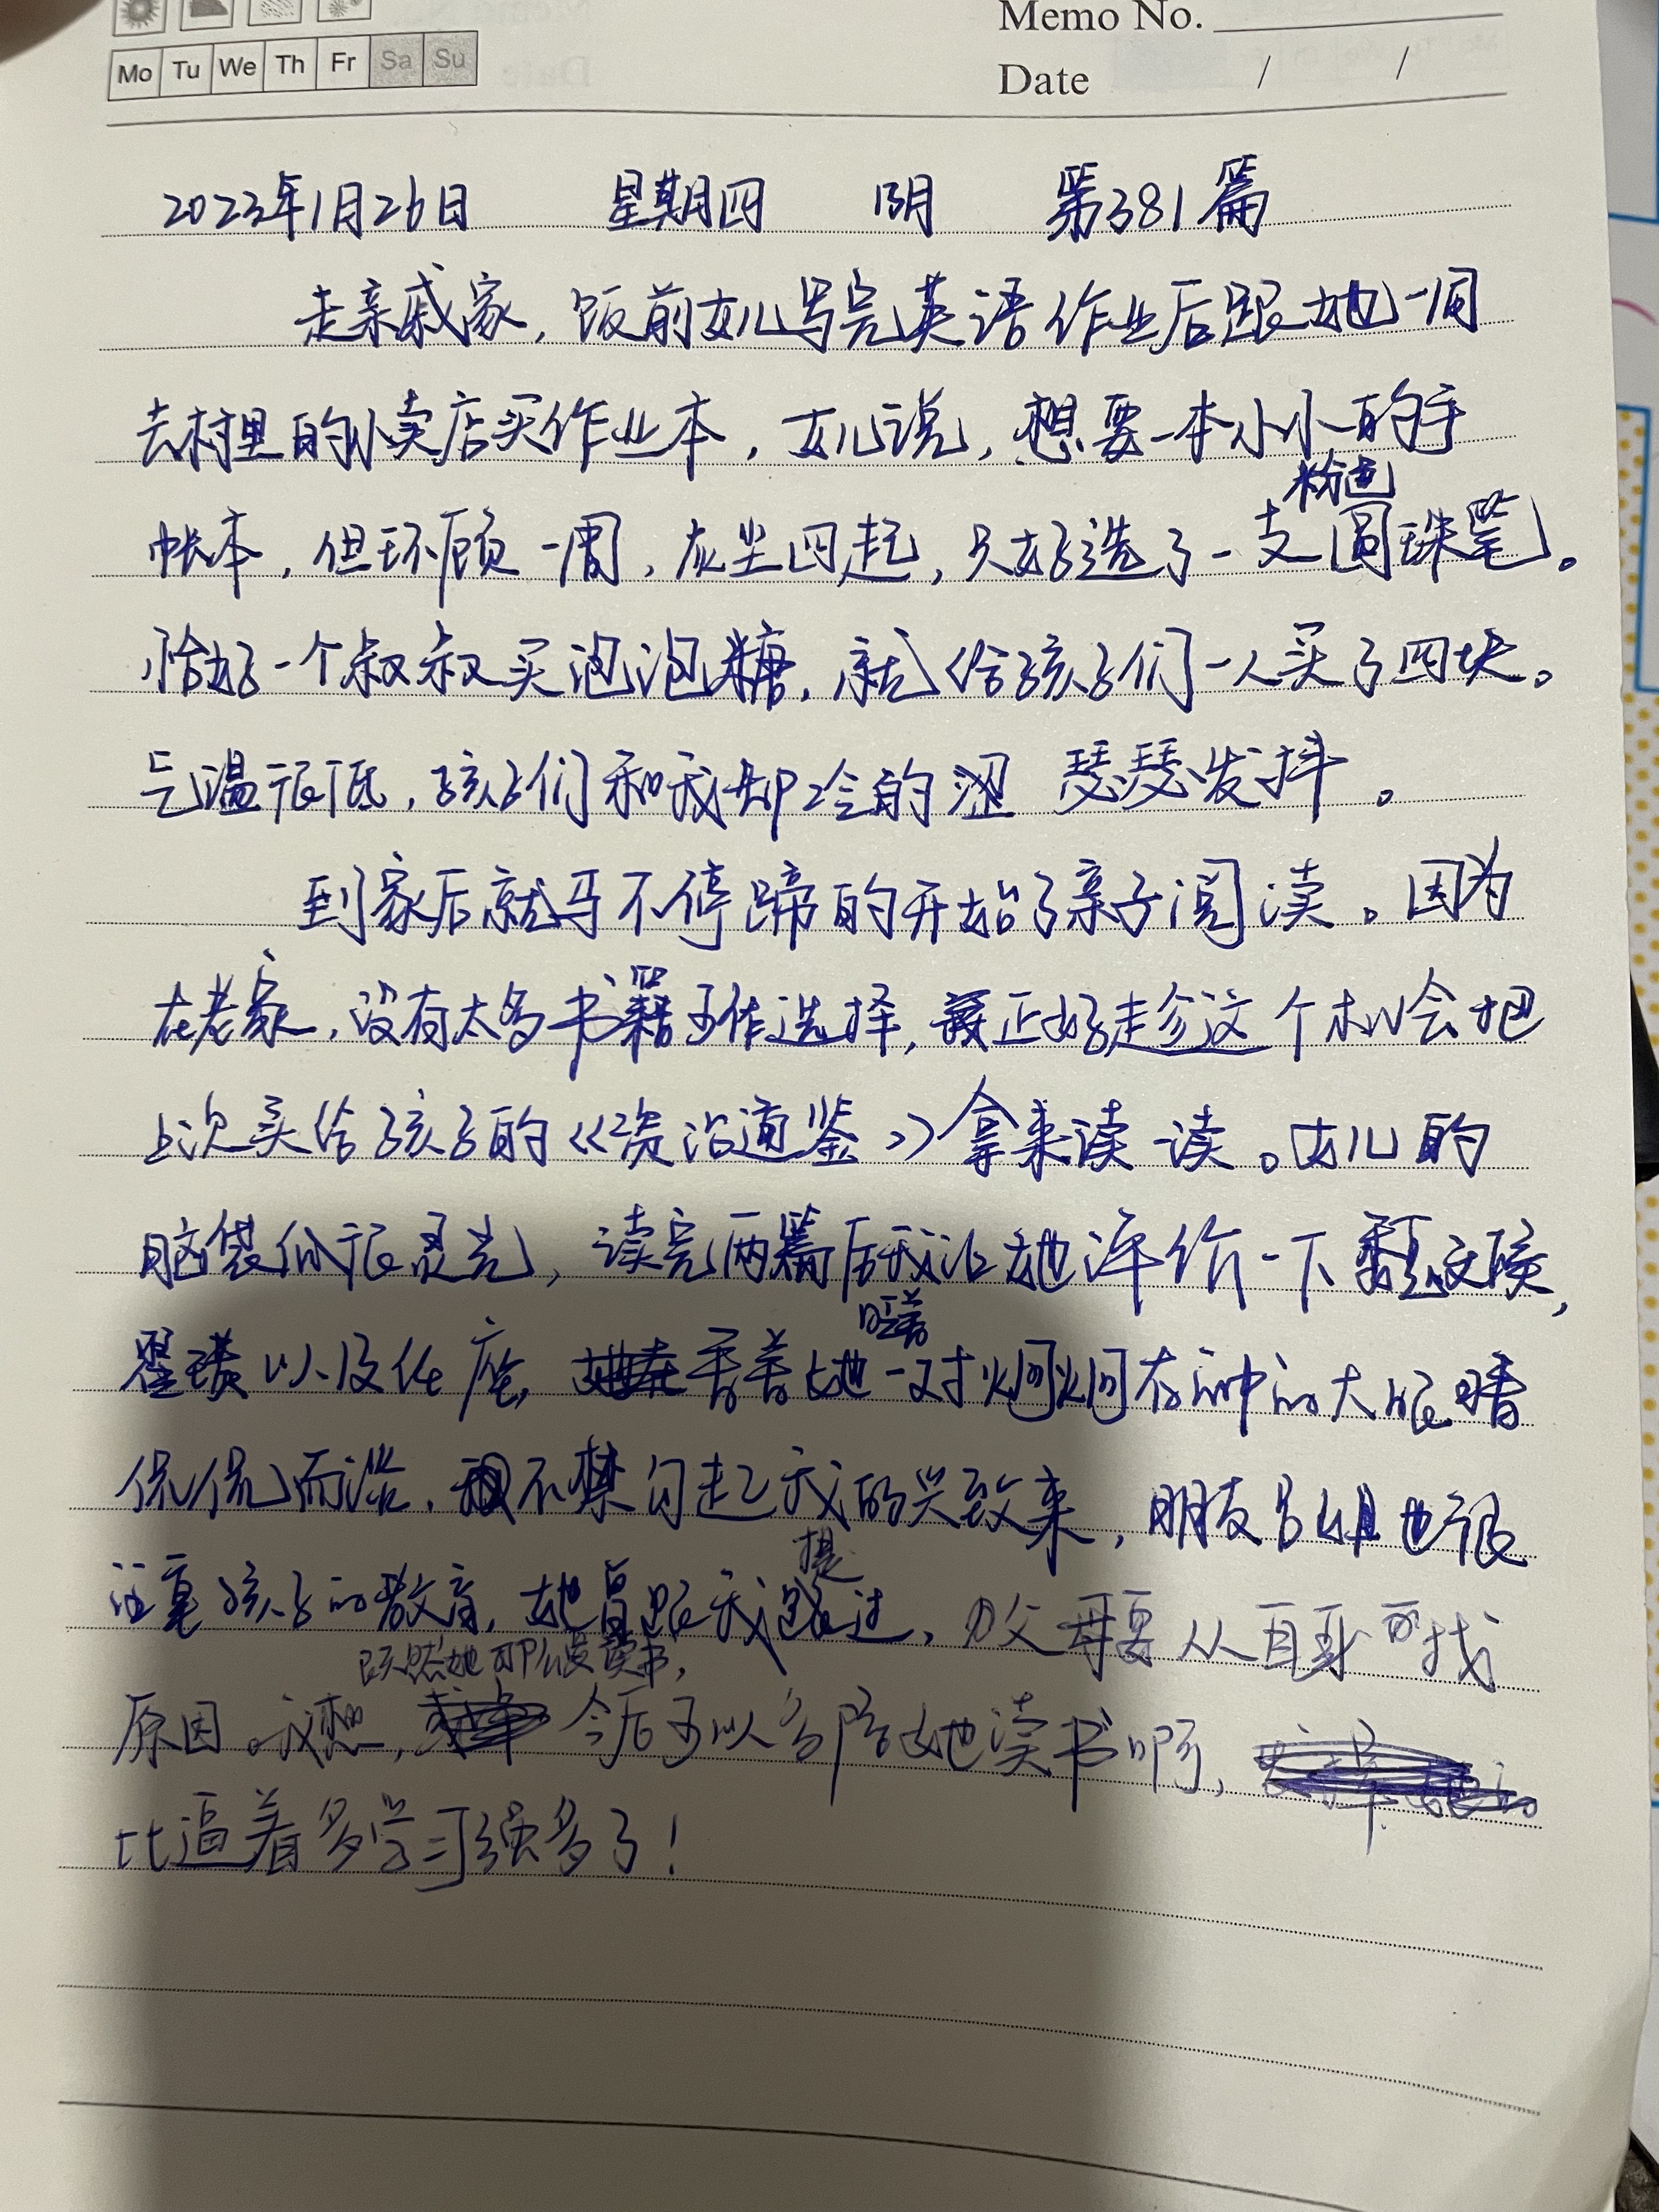 Memo No.
Mo Tu We Th Fr Sa Su
Date / /
2023年1月26日 星期四 阴 第381篇
走亲戚家，饭前女儿写完英语作业后跟她一同
去村里的小卖店买作业本，女儿说，想要一本小小的手
帐本，但环顾一周，灰尘四起，只好选了一支粉色圆珠笔。
恰好一个叔叔买泡泡糖，就给孩子们一人买了四块。
气温很低，孩子们和我却冷的 瑟瑟发抖。
到家后就马不停蹄的开始了亲子阅读。因为
在老家，没有太多书籍可作选择，正好走趁这个机会把
上次买给孩子的《资治通鉴》拿来读一读。女儿的
脑袋瓜很灵光，读完两篇后我让她评价一下魏文侯，
翟璜以及任座，看着她眨着一对炯炯有神的大眼睛
侃侃而谈，不禁勾起了我的兴致来，朋友吕姐也很
注重孩子的教育，她曾跟我提过，父母要从自身找
原因。我想，既然她那么爱读书，今后可以多陪她读书啊，
比逼着多学习强多了！